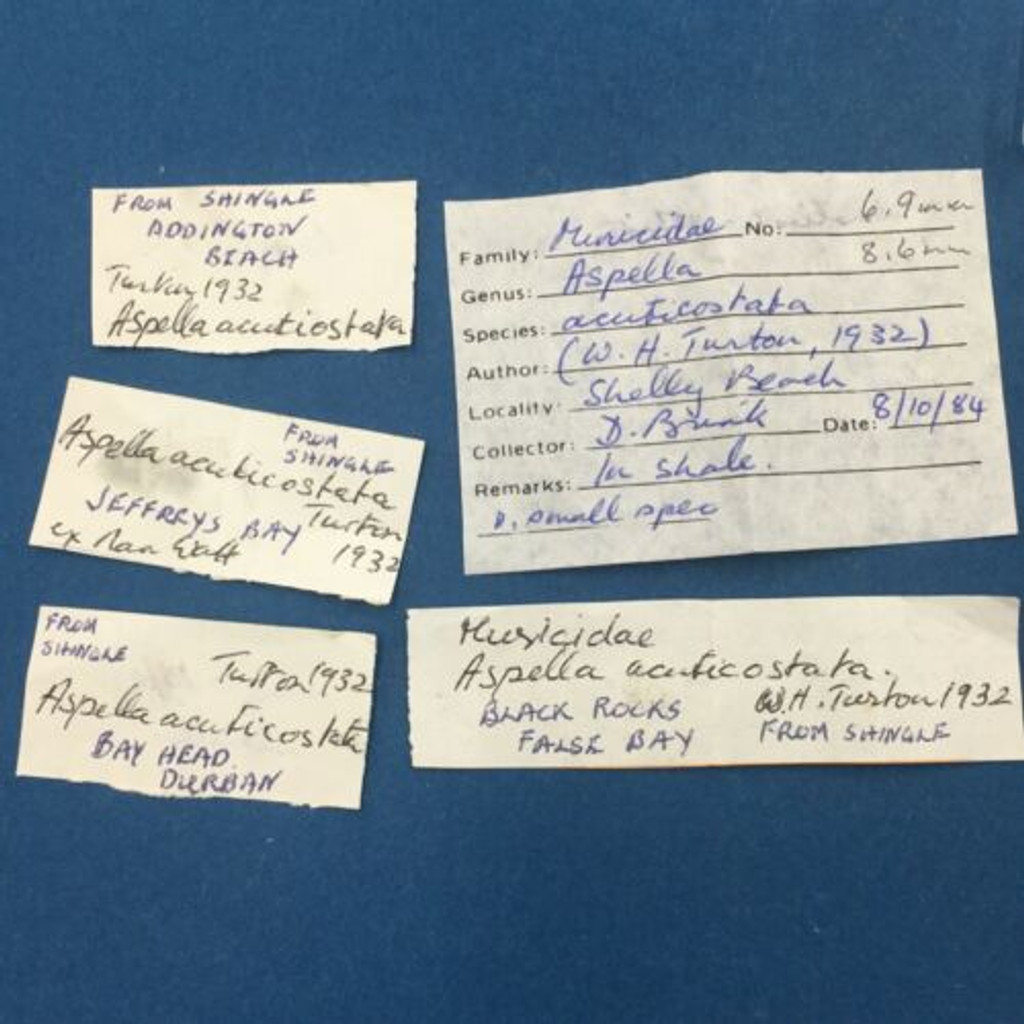 FROM SHINGLE
ADDINGTON
BEACH
Turton 1932
Aspella acuticostata
Aspella acuticostata
FROM
SHINGLE
JEFFREYS BAY Turton
1932
ex
FROM
SHINGLE
Turton 1932
Aspella acuticostata
BAY HEAD
DURBAN
6.9mm
Family: Muricidae No:
8.6mm
Genus: Aspella
Species: acuticostata
Author: (W. H. Turton, 1932)
Locality: Shelley Beach
Collector: D. Date: 8/10/84
Remarks: In shale.
small spec
Muricidae
Aspella acuticostata.
BLACK ROCKS W.H. Turton 1932
FALSE BAY FROM SHINGLE